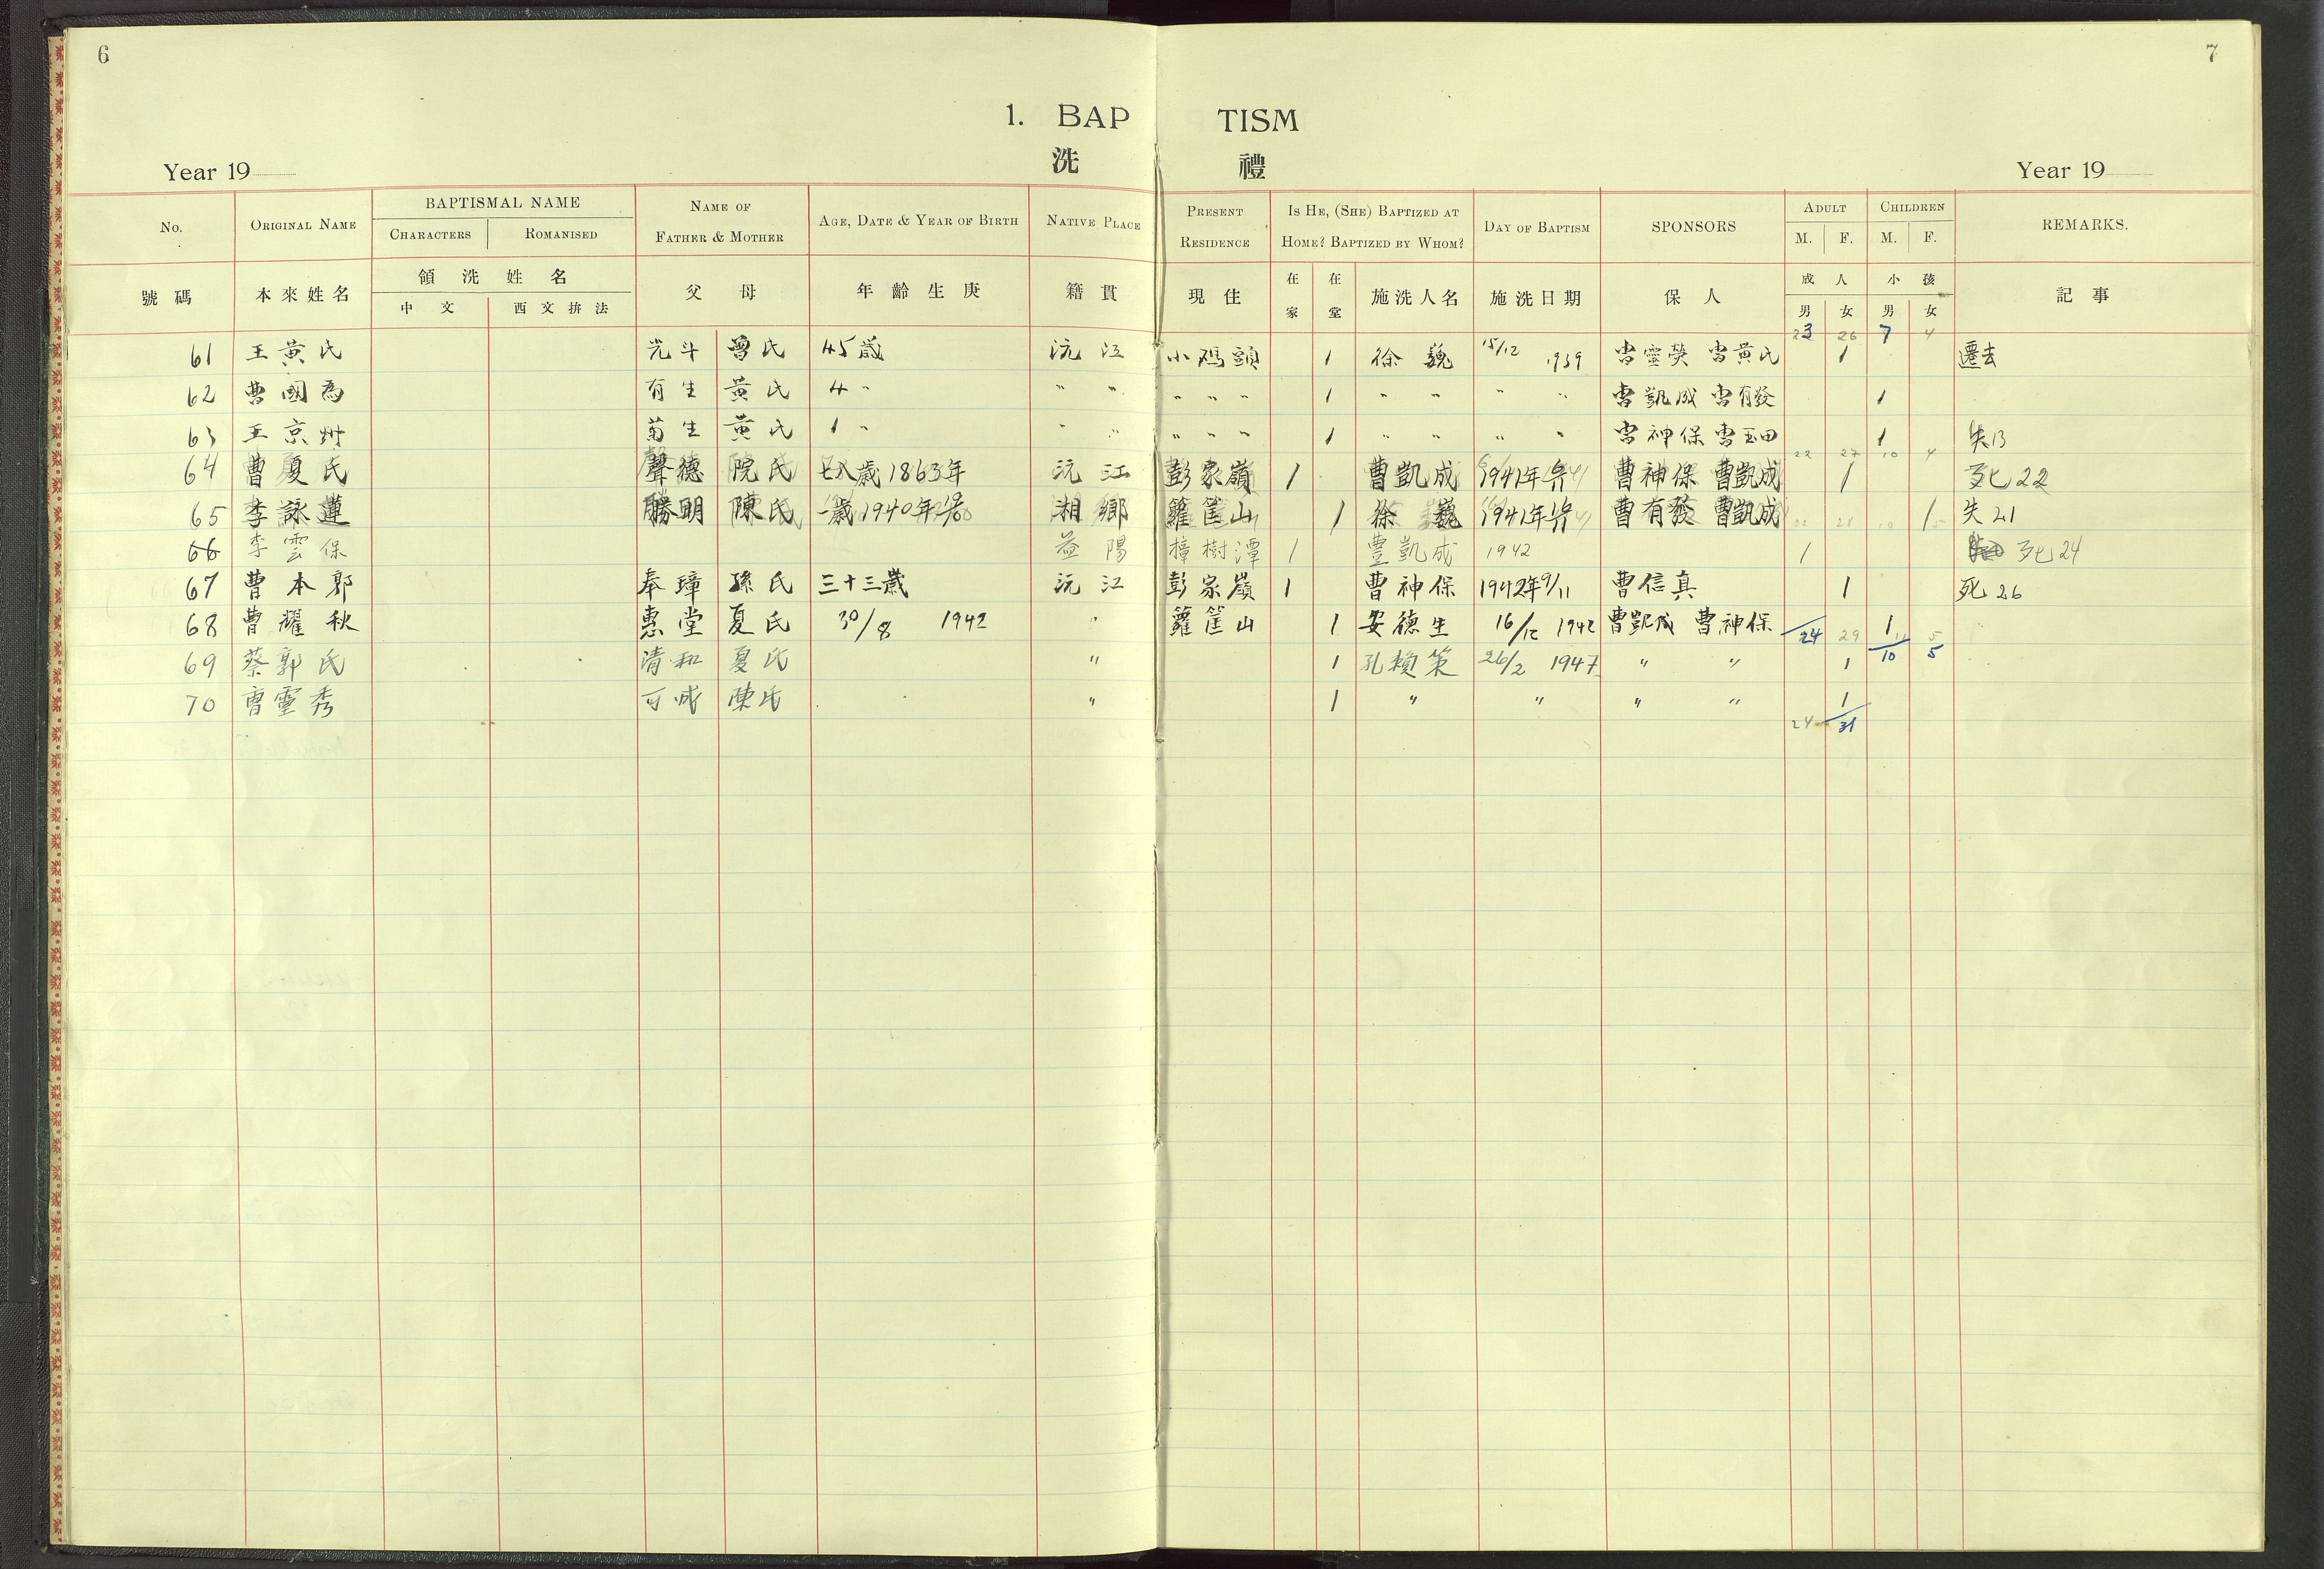 6
7
1. BAP TISM
洗 禮
Year 19
Year 19
No. ORIGINAL NAME BAPTISMAL NAME NAME OF FATHER & MOTHER AGE, DATE & YEAR OF BIRTH NATIVE PLACE PRESENT RESIDENCE IS HE, (SHE) BAPTIZED AT HOME? BAPTIZED BY WHOM? DAY OF BAPTISM SPONSORS ADULT CHILDREN REMARKS.
CHARACTERS ROMANISED M. F. M. F.
號碼 本來姓名 領洗姓名 父母 年齡生庚 籍貫 現住 在家 在堂 施洗人名 施洗日期 保人 成人 小孩 記事
中文 西文拚法 男 女 男 女
23 26 7 4
61 王黃氏 光斗 曾氏 45歲 沅江 小鸡頭 1 徐巍 15/12 1939 曹靈榮 曹黃氏 1 遷去
62 曹國為 有生 黃氏 4 〃 〃 〃 〃 〃 〃 1 〃 〃 〃 〃 曹凱成 曹有發 1
63 王京州 菊生 黃氏 1 〃 〃 〃 〃 〃 〃 1 〃 〃 〃 〃 曹神保 曹玉田 1 失13
22 27 10 4
64 曹夏氏 聲德 院氏 七八歲1863年 沅江 彭家嶺 1 曹凱成 1941年 曹神保 曹凱成 1 死22
65 李詠蓮 勝明 陳氏 一歲1940年 湘鄉 籮筐山 1 徐巍 1941年 曹有發 曹凱成 1 失21
22 28 10 5
66 李雲保 益陽 樟樹潭 1 曹凱成 1942 1 死24
67 曹本郭 奉璋 孫氏 三十三歲 沅江 彭家嶺 1 曹神保 1942年9/11 曹信真 1 死26
68 曹耀秋 惠堂 夏氏 30/8 1942 〃 籮筐山 1 安德生 16/12 1942 曹凱成 曹神保 1
24 29 11 5
69 蔡郭氏 清和 夏氏 〃 1 孔賴策 26/2 1947 〃 〃 1
10 5
70 曹靈秀 可成 陳氏 〃 1 〃 〃 〃 〃 1
24 31